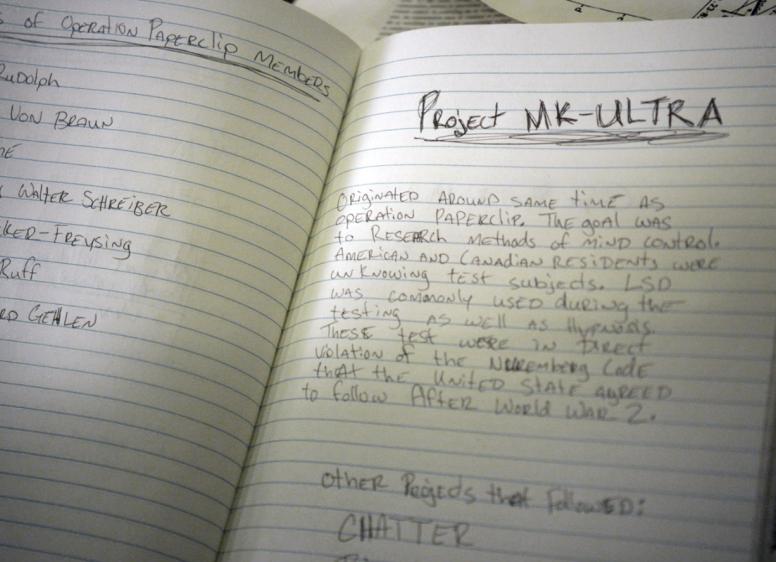 of Operation Paperclip Members
Rudolph
Von Braun
Walter Schreiber
Freysing
Ruff
Gehlen
Project MK-ULTRA
Originated around same time as
Operation Paperclip. The goal was
to Research Methods of Mind Control.
American and Canadian Residents were
unknowing test subjects. LSD
was commonly used during the
testing as well as Hypnosis.
These test were in Direct
violation of the Nuremberg Code
that the United State agreed
to follow After World War 2.
Other Projects that Followed:
CHATTER